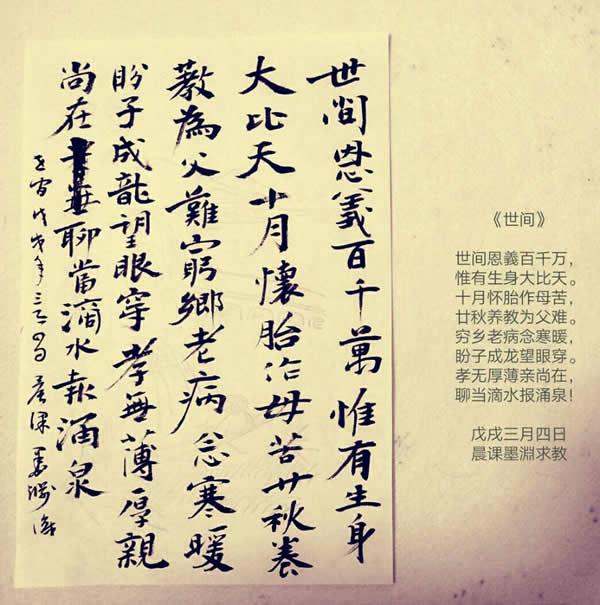 世間恩義百千萬惟有生身
大比天十月懷胎作母苦廿秋養
教為父難窮鄉老病念寒暖
盼子成龍望眼穿孝無薄厚親
尚在聊當滴水報涌泉
戊戌年三月四日晨课墨渊
《世间》
世间恩義百千万，
惟有生身大比天。
十月怀胎作母苦，
廿秋养教为父难。
穷乡老病念寒暖，
盼子成龙望眼穿。
孝无厚薄亲尚在，
聊当滴水报涌泉！
戊戌三月四日
晨课墨淵求教